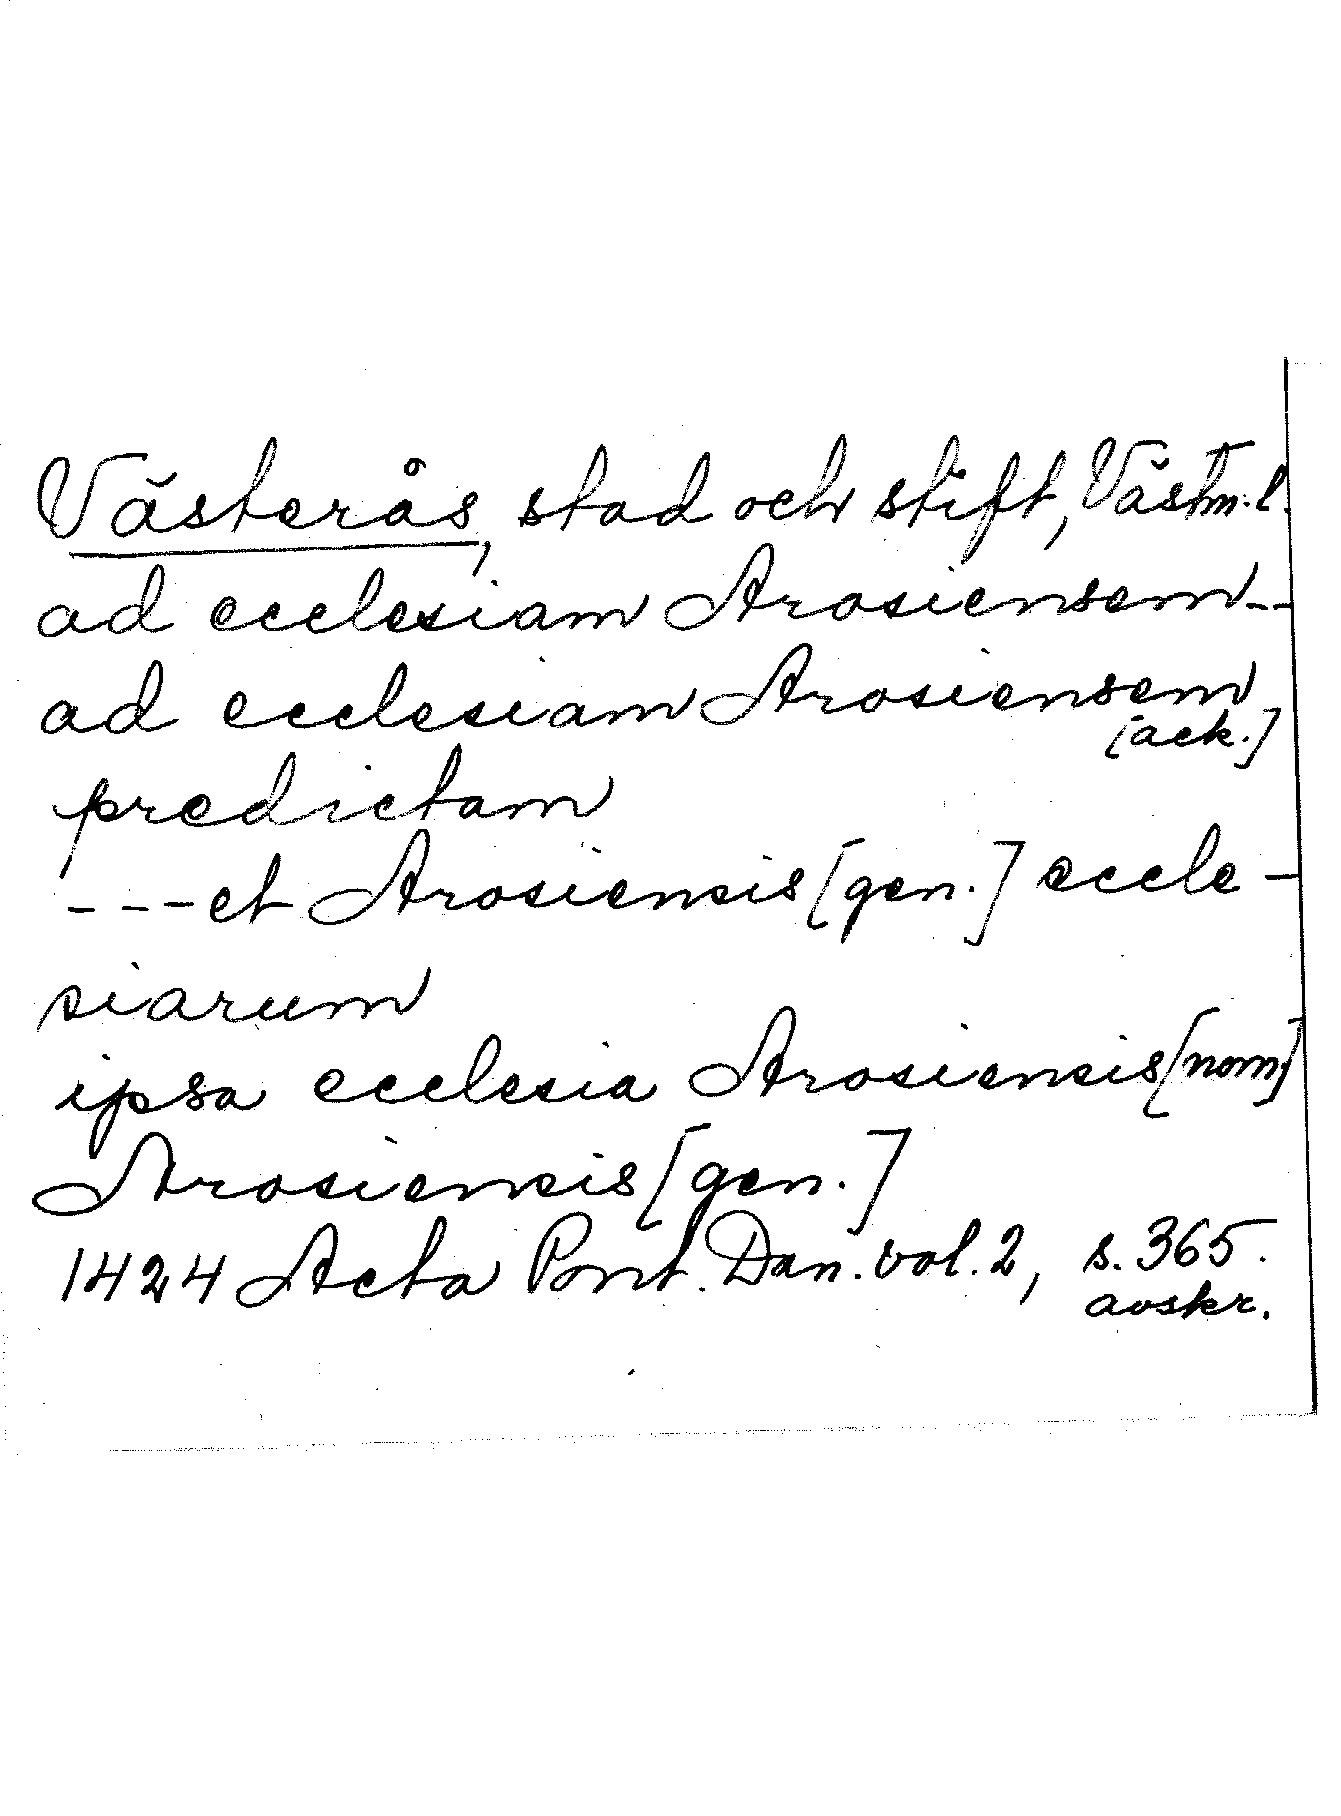 Västerås, stad och stift, Västm. l.
ad ecclesiam Arosiensem--
ad ecclesiam Arosiensem
[ack.]
predictam
---et Arosiensis [gen.] eccle-
siarum
ipsa ecclesia Arosiensis [nom]
Arosiensis [gen.]
1424 Acta Pont. Dan. vol. 2, s. 365.
avskr.